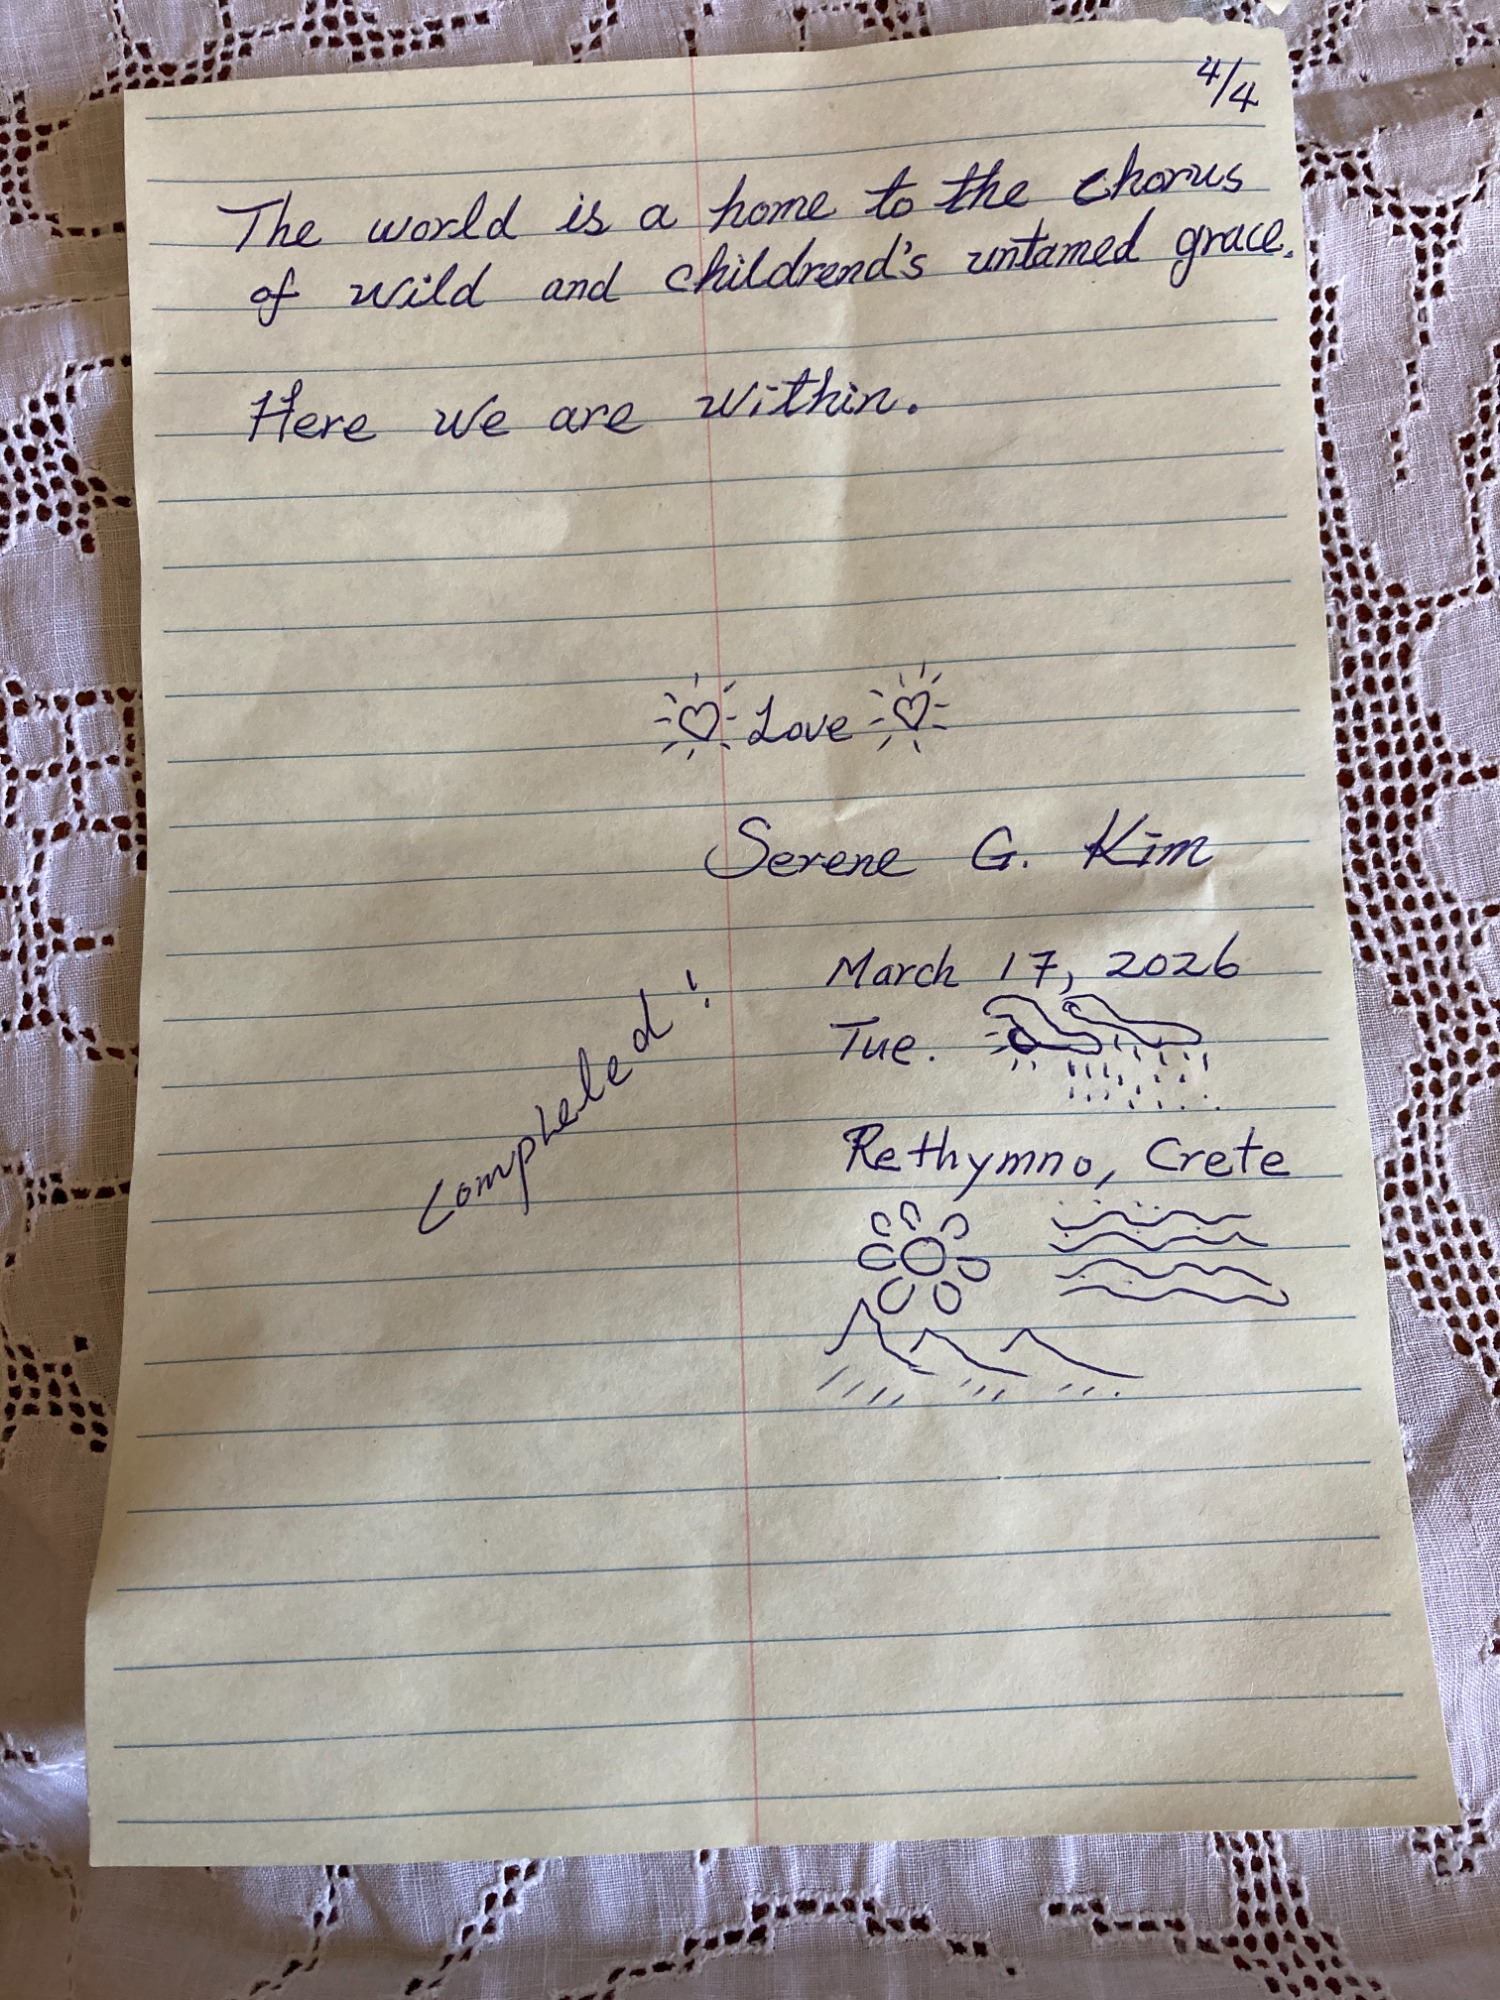 4/4
The world is a home to the chorus
of wild and childrend's untamed grace.
Here we are within.
Love
Serene G. Kim
March 17, 2026
Tue.
Completed!
Rethymno, Crete